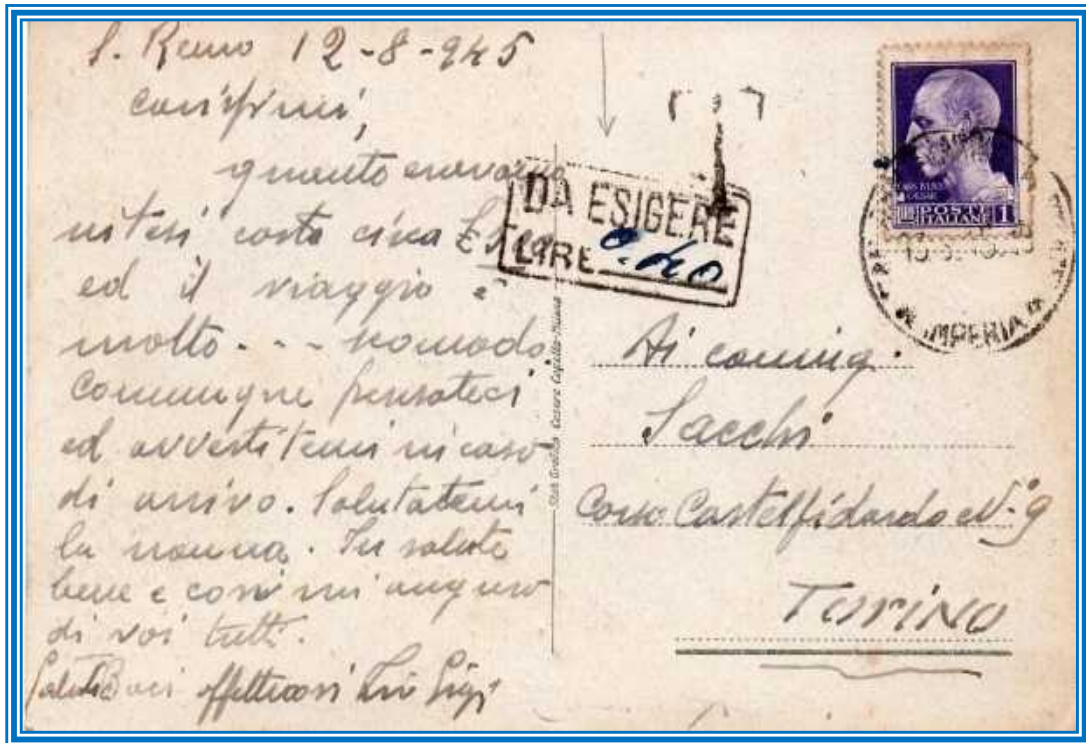 S. Remo 12-8-945
carissimi,
quanto eravamo
intesi costa circa £
ed il viaggio è
molto - - - scomodo.
Comunque pensateci
ed avvertitemi in caso
di arrivo. Salutatemi
la nonna. In salute
bene e così mi auguro
di voi tutti.
Saluti Baci affettuosi Zio Gigi
T
DA ESIGERE
LIRE 0.40
POSTE
ITALIANE
1
IMPERIA
Ai coniug.
Sacchi
Corso Castelfidardo N.° 9
Torino